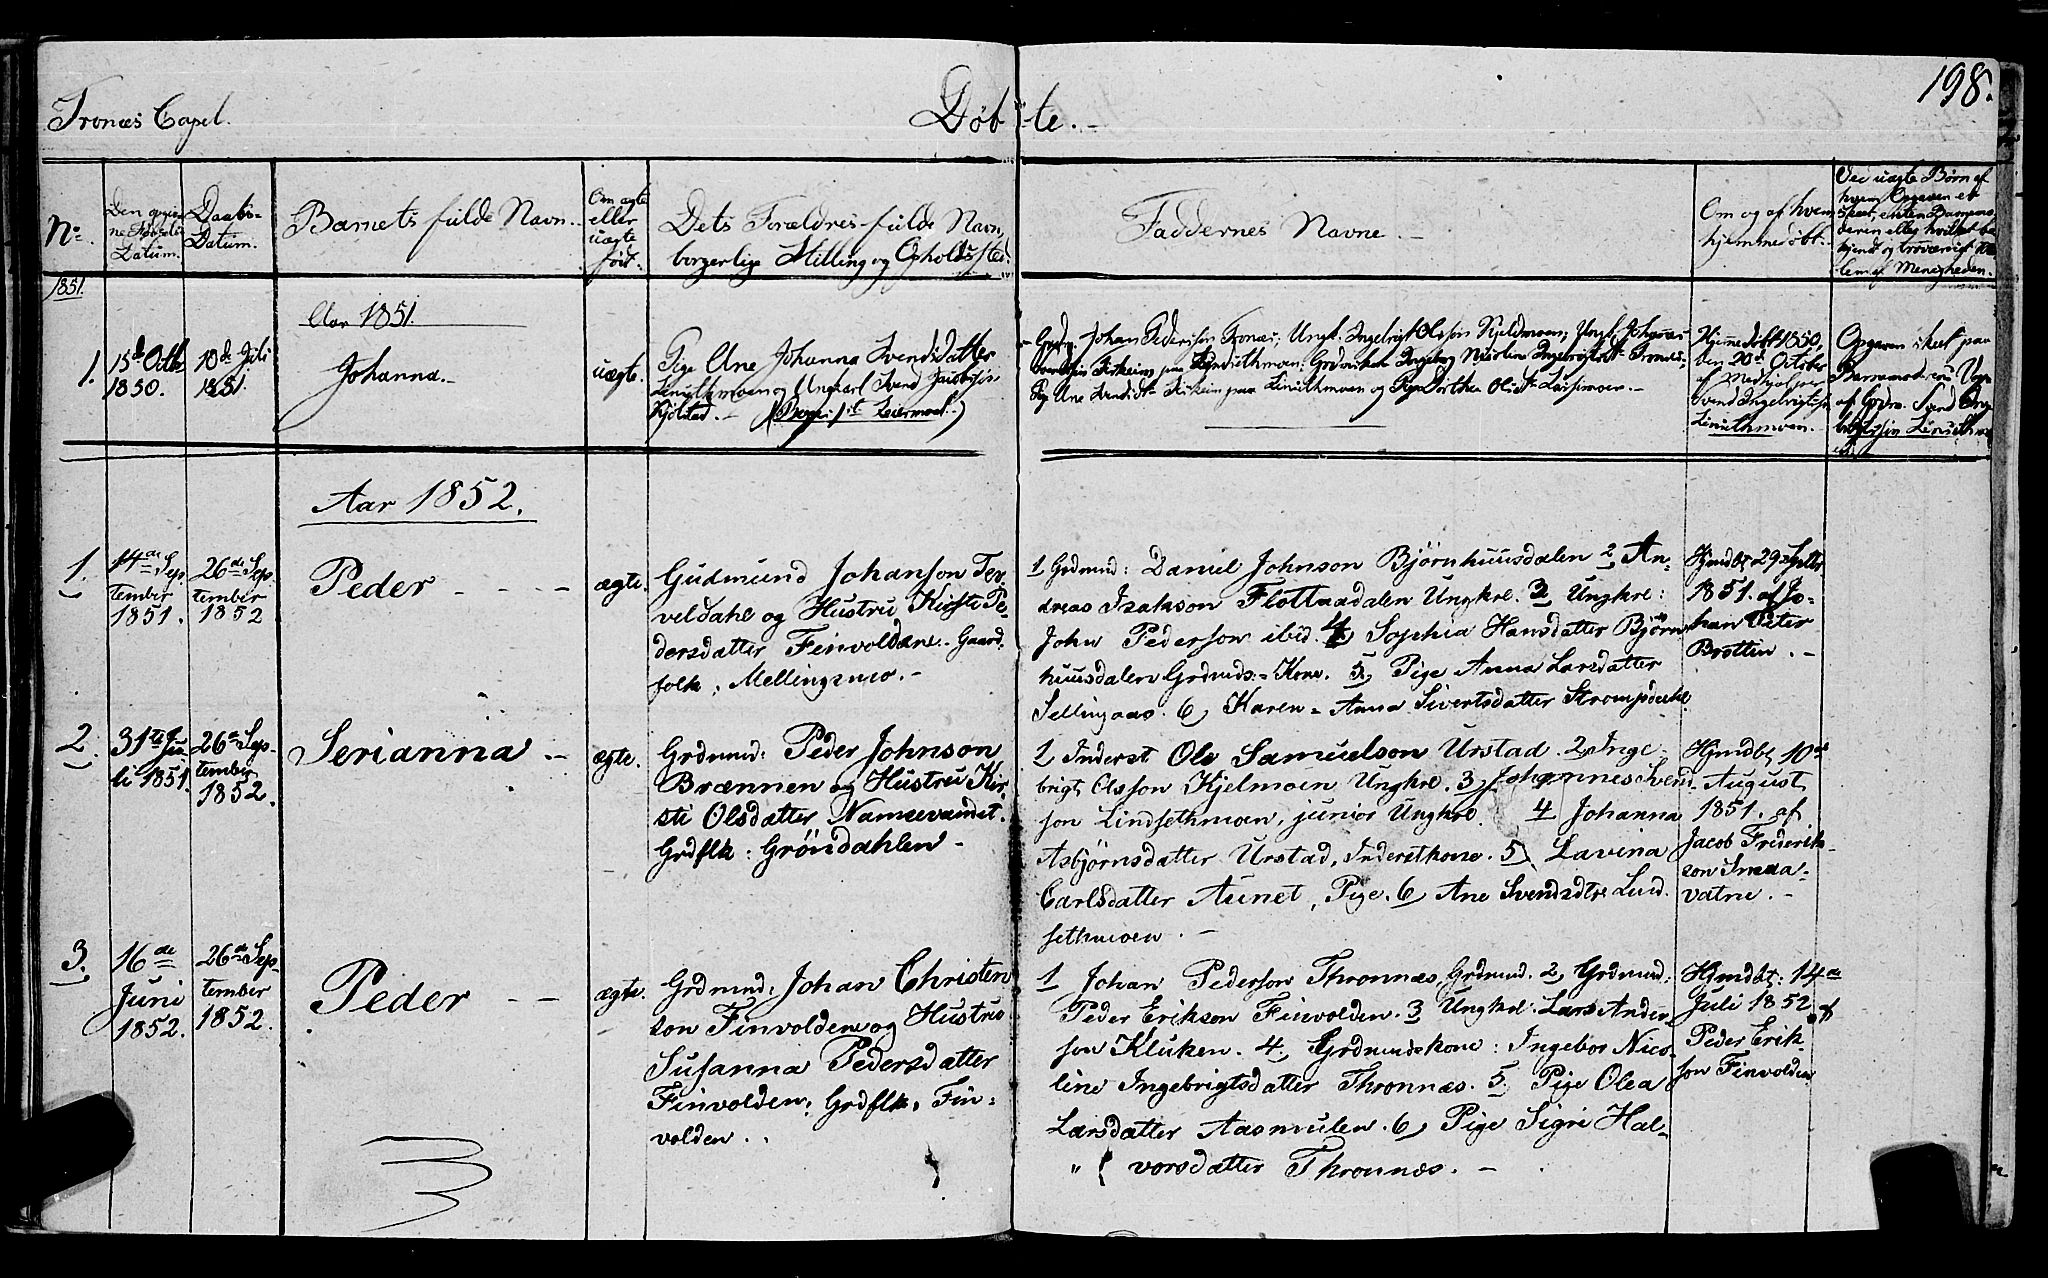 198.
Tronæs Capel.
Døbte. -
No.
Den opgivne Fødsels Datum.
Daabs-
Datum.
Barnets fulde Navn.
Om ægte
eller
uægte
født.
Dets Forældres fulde Navn,
borgerlige Stilling og Opholdssted.
Faddernes Navne. -
Om og af hvem
hjemmedøbt.
Ved uægte Børn af
hvem Opgaven er
skeet, enten Barnemo-
deren eller hvilket be-
kjendt og troværdigt Med-
lem af Menigheden.
1851.
Aar 1851.
1.
15de Octb
1850.
10de Juli
1851
Johanna. -
uægte.
Pige Ane Johanna Svendsdatter
og Ungkarl Svend
(Begges 1ste Leiermaal.)
Johan Pederssøn Tronæs; Ungk. Ingebrigt Olssøn Kjeldmoen; Ungk. Johannes
paa
Ane Svendsdtr paa og Pige
Hjemmedøbt 1850,
den 20de October
af
Svend Ingebrigtssøn
Linsethmoen. -
Opgaven skeet paa
Barnemoderens
af Svend
Aar 1852.
1.
14de Sep
tember
1851.
26de Sep-
tember
1852
Peder - - - -
ægte.
Gudmund Johanson Ter-
veldahl og Hustru Kirsti Pe-
dersdatter Finvolden. - Gaard-
folk, Mellingsmo. -
1 Grdmnd: Daniel Johnson Bjørnhuusdalen 2, An-
dreas Isakson Flottadalen Ungkrl. 3, Ungkrl:
John Pederson ibid. 4, Sophia Hansdatter Bjørn
huusdalen Grdmds: = Kone. 5, Pige Anna Larsdatter
Sellingaas. 6, Karen = Anna Sivertsdatter
Hjmdbt 29 Septbr
1851. af Jo-
han Peter
Brottin. -
2.
31te Ju-
li 1851.
26de Sep-
tember
1852.
Serianna -
ægte.
Grdmnd: Peder Johnson
Brænnen og Hustru Kir-
sti Olsdatter Namsvandet.
Grdflk: Gröndahlen -
1 Inderst Ole Samuelson Urstad. 2, Inge-
brigt Olsson Kjelmoen Ungkrl. 3, Johannes Svend-
son Lindsethmoen, junior Ungkrl. 4 Johanna
Asbjørnsdatter Urstad, Inderstkone. 5, Lavina
Carlsdatter Aunet, Pige. 6, Ane Svendsdtr Lind-
sethmoen. -
Hjmdbt 10de
August
1851. af
Jacob Frederik-
son Smaa-
vatne. -
3.
16de
Juni
1852.
26de Sep-
tember
1852.
Peder - -
ægte.
Grdmnd: Johan Christen
son Finvolden og Hustru
Susanna Pedersdatter
Finvolden, Grdflk, Fin-
volden.
1 Johan Pederson Thronnæs, Grdmnd. 2, Grdmnd:
Peder Erikson Finvolden. 3 Ungkrl: Lars Ander-
son Kluken. 4, Grdmndskone: Ingebor Nico-
line Ingebrigtsdatter Thronnæs. 5, Pige Olea
Larsdatter Aasmulen. 6, Pige Sigri Hal-
" vorsdatter Thronnæs. -
Hjmdbt: 14de
Juli 1852 af
Peder Erik-
son Finvolden